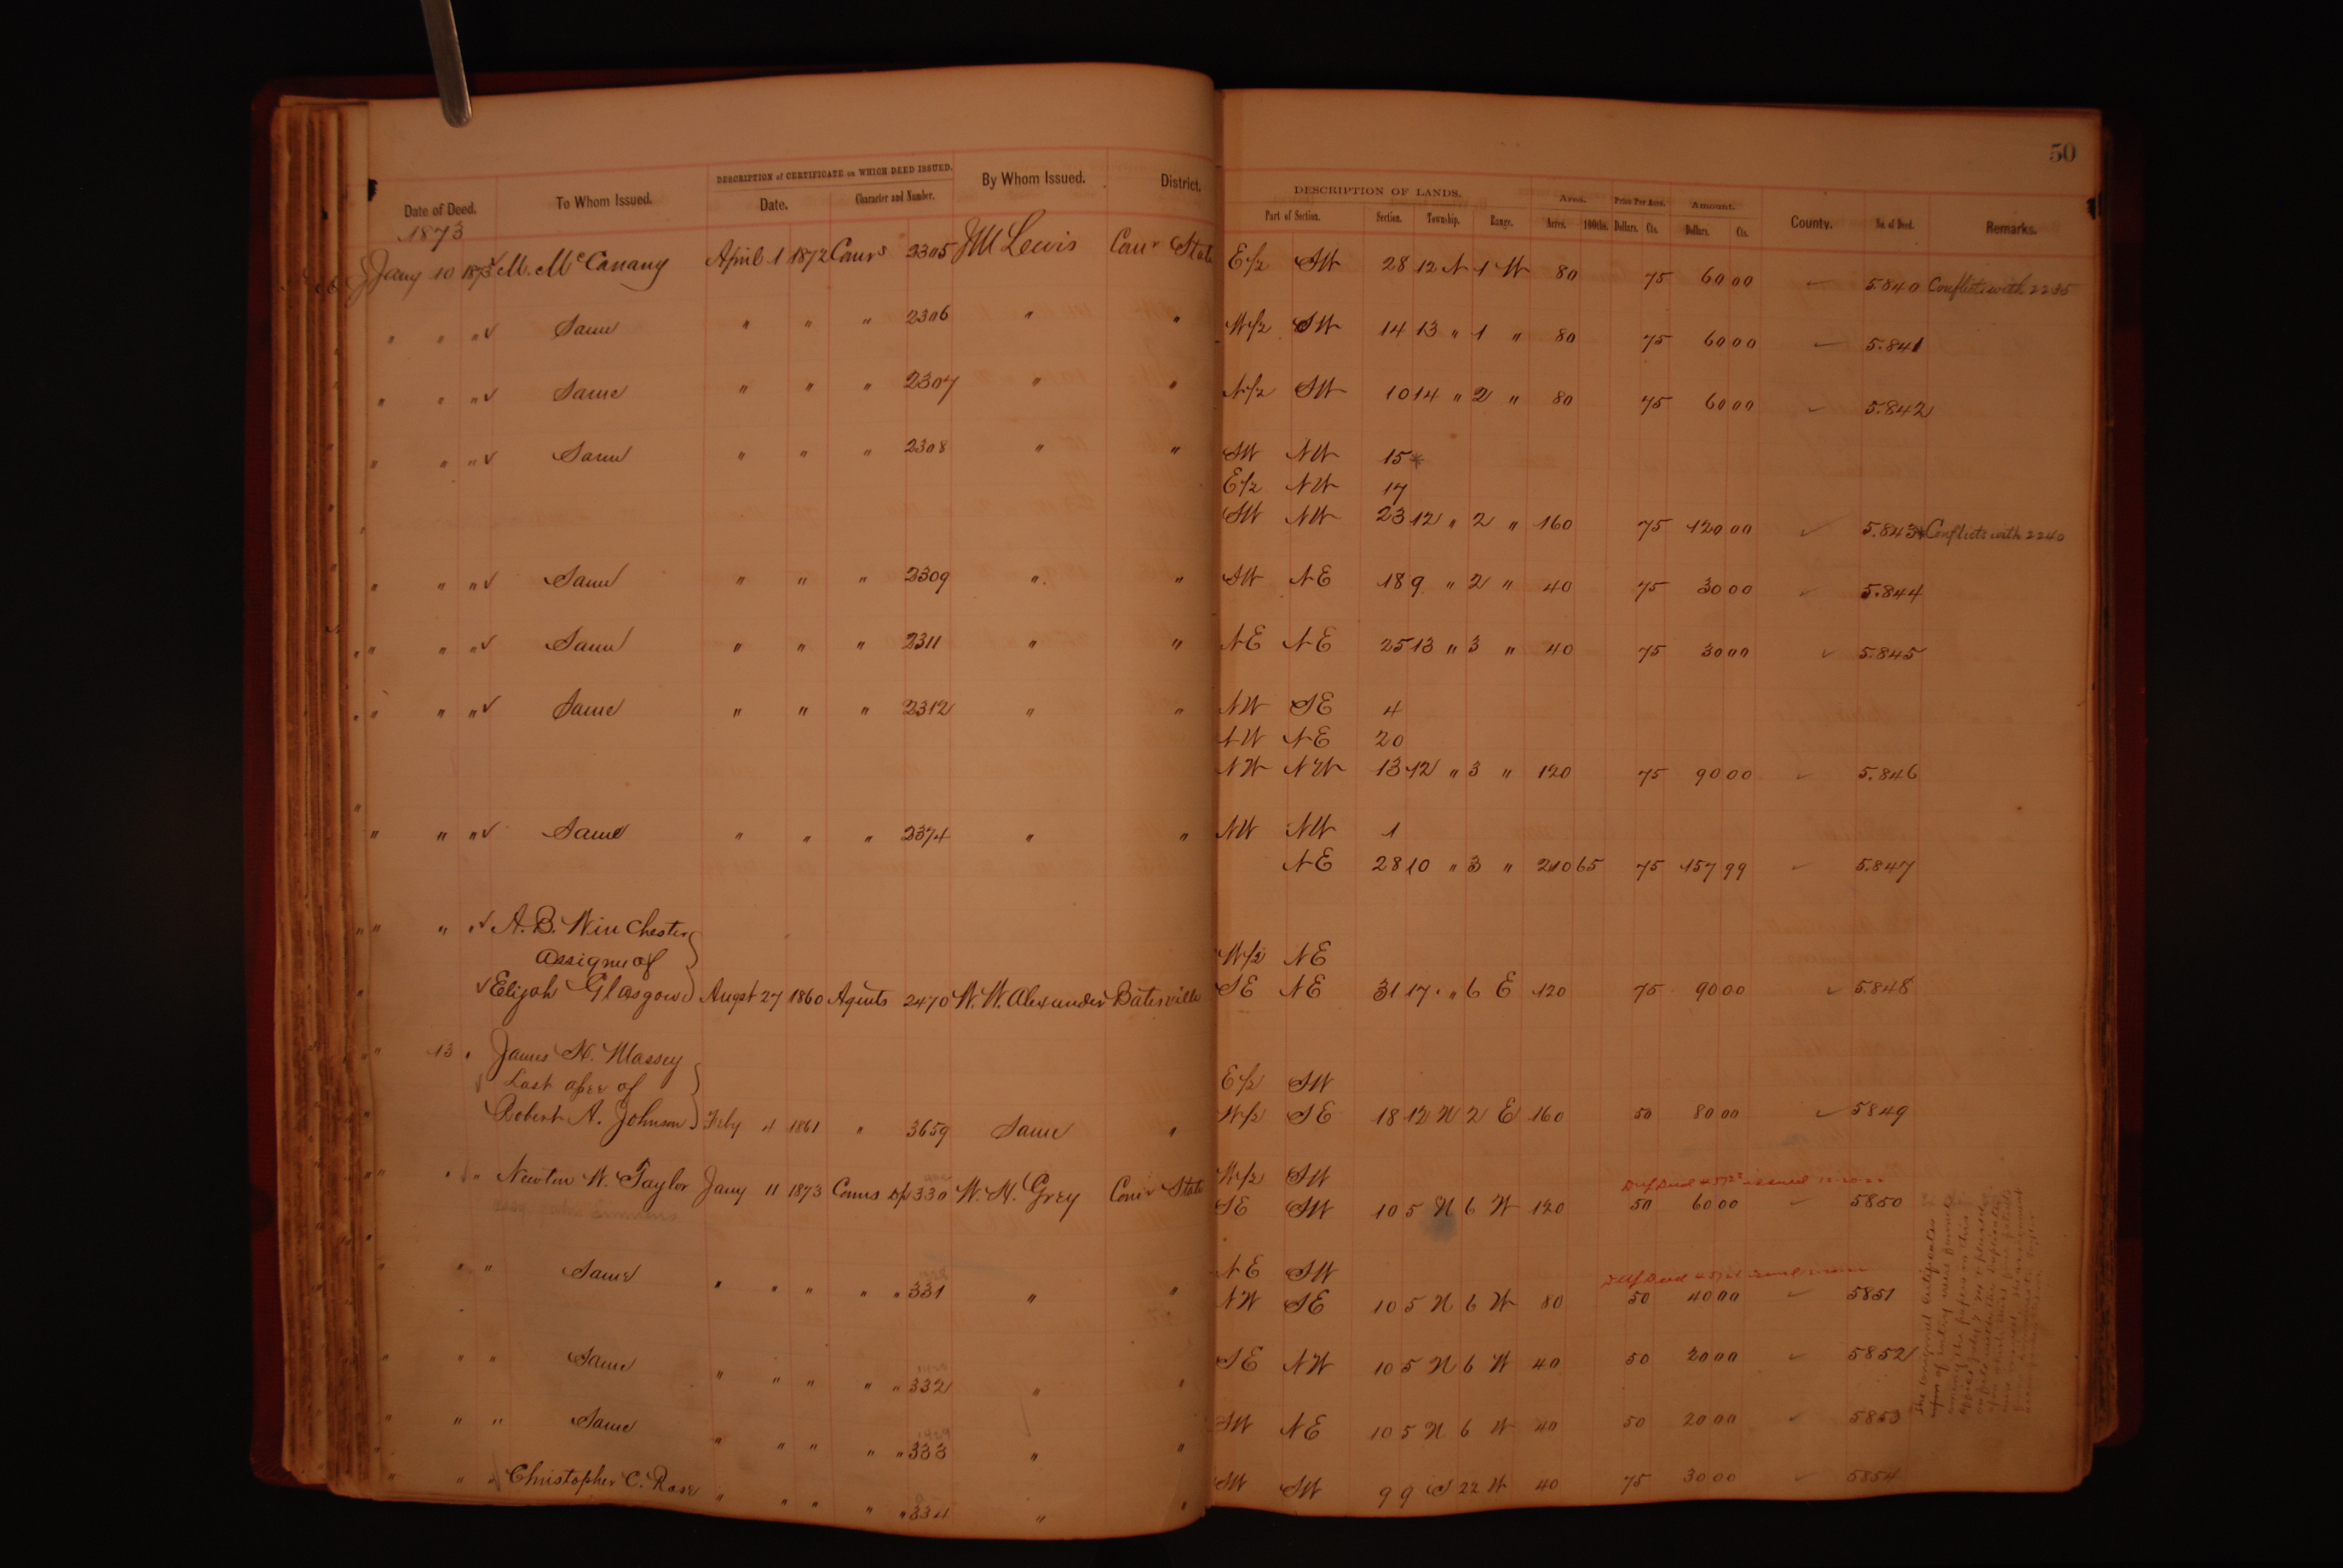 50
DESCRIPTION of CERTIFICATE on WHICH DEED ISSUED.
Date of Deed. To Whom Issued. Date. Character and Number. By Whom Issued. District.
DESCRIPTION OF LANDS. Area. Price Per Acre. Amount.
Part of Section. Section. Township. Range. Acres. 100ths. Dollars. Cts. Dollars. Cts. County. No. of Deed. Remarks.
1873
Jany 10 1873 M. McCanany April 1 1872 Comrs 2305 JM Lewis Com State E/2 SW 28 12 N 1 W 80 75 60 00 ✓ 5.840 Conflicts with 2235
" " " ✓ Same " " " 2306 " " W/2 SW 14 13 " 1 " 80 75 60 00 ✓ 5.841
" " " ✓ Same " " " 2307 " " N/2 SW 10 14 " 2 " 80 75 60 00 ✓ 5.842
" " " ✓ Same " " " 2308 " " SW NW 15 *
E/2 NW 17
SW NW 23 12 " 2 " 160 75 120 00 ✓ 5.843 * Conflicts with 2240
" " " ✓ Same " " " 2309 " " SW NE 18 9 " 2 " 40 75 30 00 ✓ 5.844
" " " ✓ Same " " " 2311 " " NE NE 25 13 " 3 " 40 75 30 00 ✓ 5.845
" " " ✓ Same " " " 2312 " " NW SE 4
NW NE 20
NW NW 13 12 " 3 " 120 75 90 00 ✓ 5.846
" " " ✓ Same " " " 2374 " " NW NW 1
NE 28 10 " 3 " 210 65 75 157 99 ✓ 5.847
" " " ✓ A. B. Winchester
assignee of W/2 NE
✓ Elijah Glasgow Augst 27 1860 Agents 2470 W. W. Alexander Batesville SE NE 31 17 " 6 E 120 75 90 00 ✓ 5.848
" 13 " James H. Massey
✓ Last assee of E/2 SW
Robert A. Johnson Feby 4 1861 " 3659 Same " W/2 SE 18 12 N 2 E 160 50 80 00 ✓ 5849
" " " Newton W. Taylor Jany 11 1873 Comrs 330 W. H. Grey Comr State W/2 SW
SE SW 10 5 N 6 W 120 50 60 00 ✓ 5850
" " " Same " " " " " 331 " " NE SW
NW SE 10 5 N 6 W 80 50 40 00 ✓ 5851
" " " Same " " " " " 332 " " SE NW 10 5 N 6 W 40 50 20 00 ✓ 5852
" " " Same " " " " " 333 " " SW NE 10 5 N 6 W 40 50 20 00 ✓ 5853
" " " Christopher C. Rose " " " " " 334 " " SW SW 9 9 S 22 W 40 75 30 00 ✓ 5854
The original Certificates